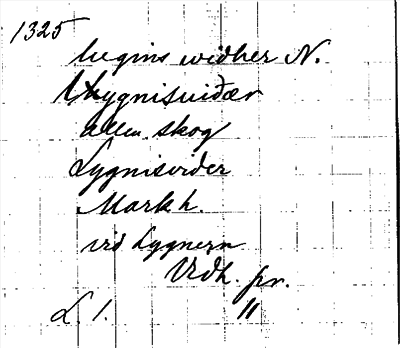 1325
lugins widher N.
Lygnisuiðær
allm. skog
Lygnisvider
Markh.
vid Lygnern
Vidh. pr.
L. 1. 11